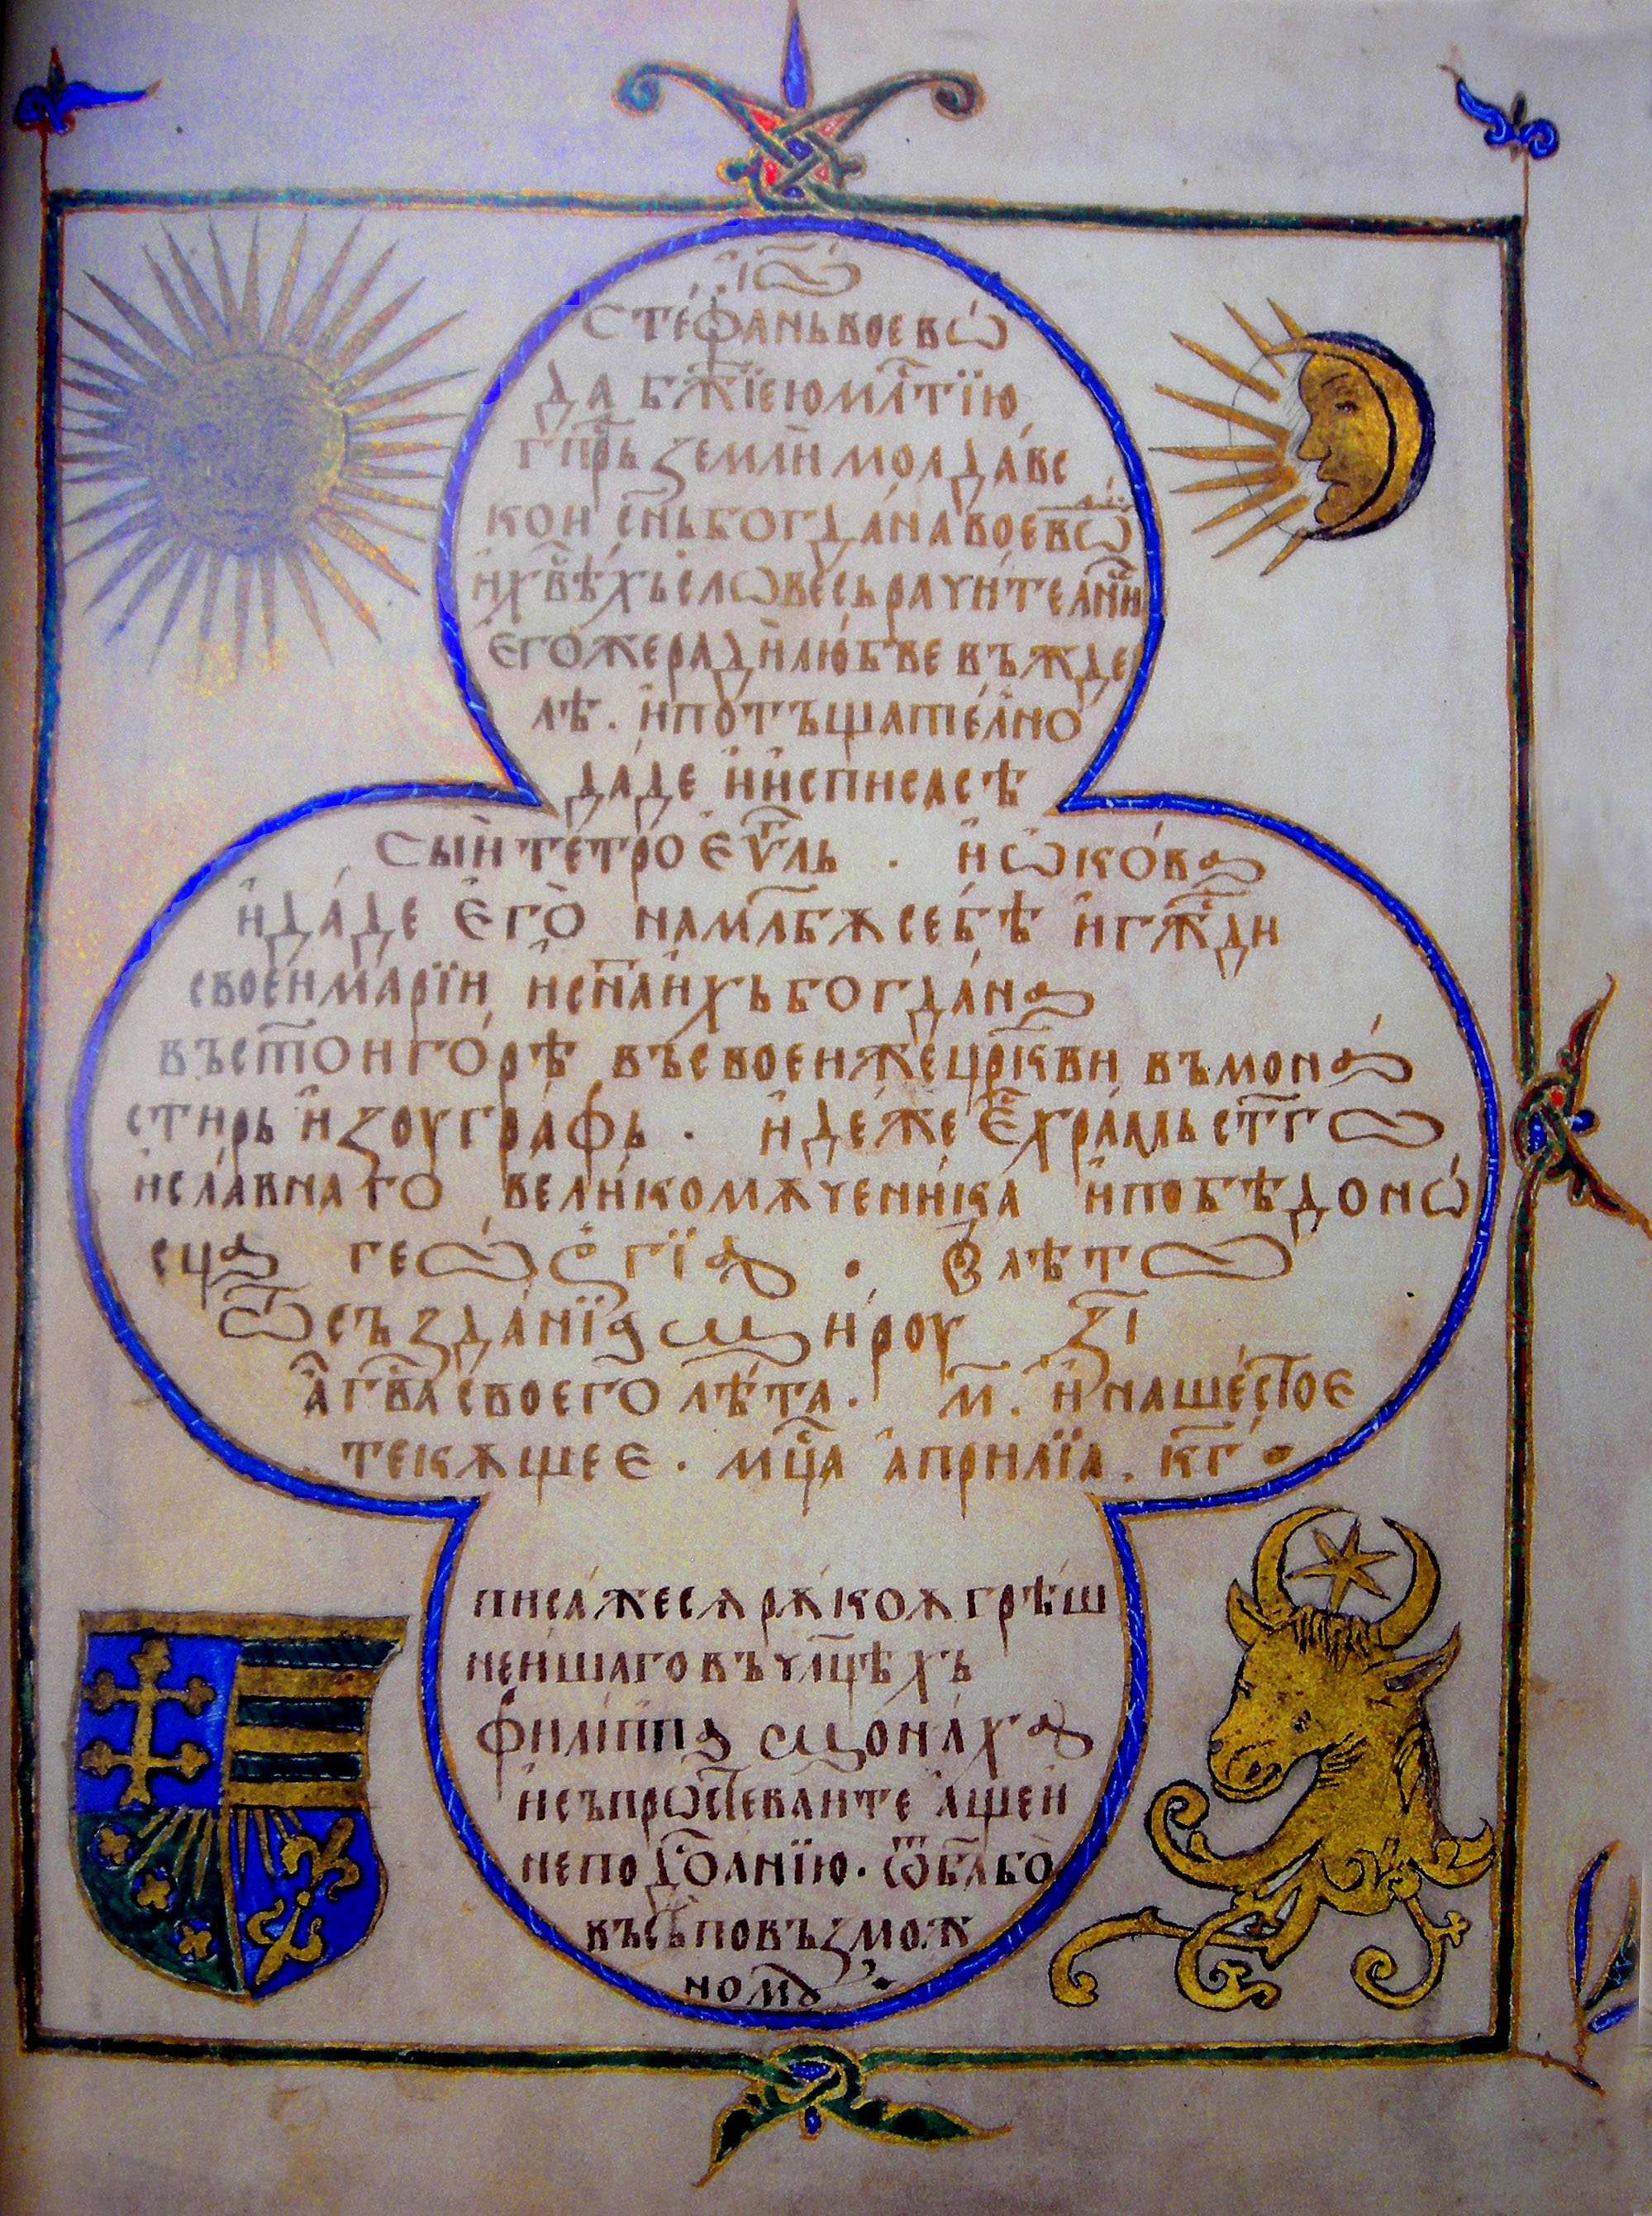 Іѡ
Стефань воевѡ
да бжїею млтїю
гпрь земли молдавс
кои снь богдана воевѡ
и хвѣхь словесь рачителнии
єгоже ради любве въжде
лѣ. и потъщателно
даде и исписасѣ
сыи тетроєѵль . и ѡкова
и даде єго на млбѫ себѣ и гжди
своеи марїи и снаихь богдана
въ стои горѣ въ своеи же цркви въ мона
стирь и зоуграфь . идеже є храмь стго
и славнаго великомѫченика и побѣдоно
сца геѡргїа . в лѣто
ѿ създанїа мироу ҂зі
а гва своего лѣта. м. и на шестое
текѫщеє . мца априлїа . кг
писа же сѧ рѫкоѧ грѣш
неишаго въ члцѣхъ
филіппа монаха
и съ простеваите аще и
не по доволнїю. ѿ ба бо
въсѣ по възмож
ному